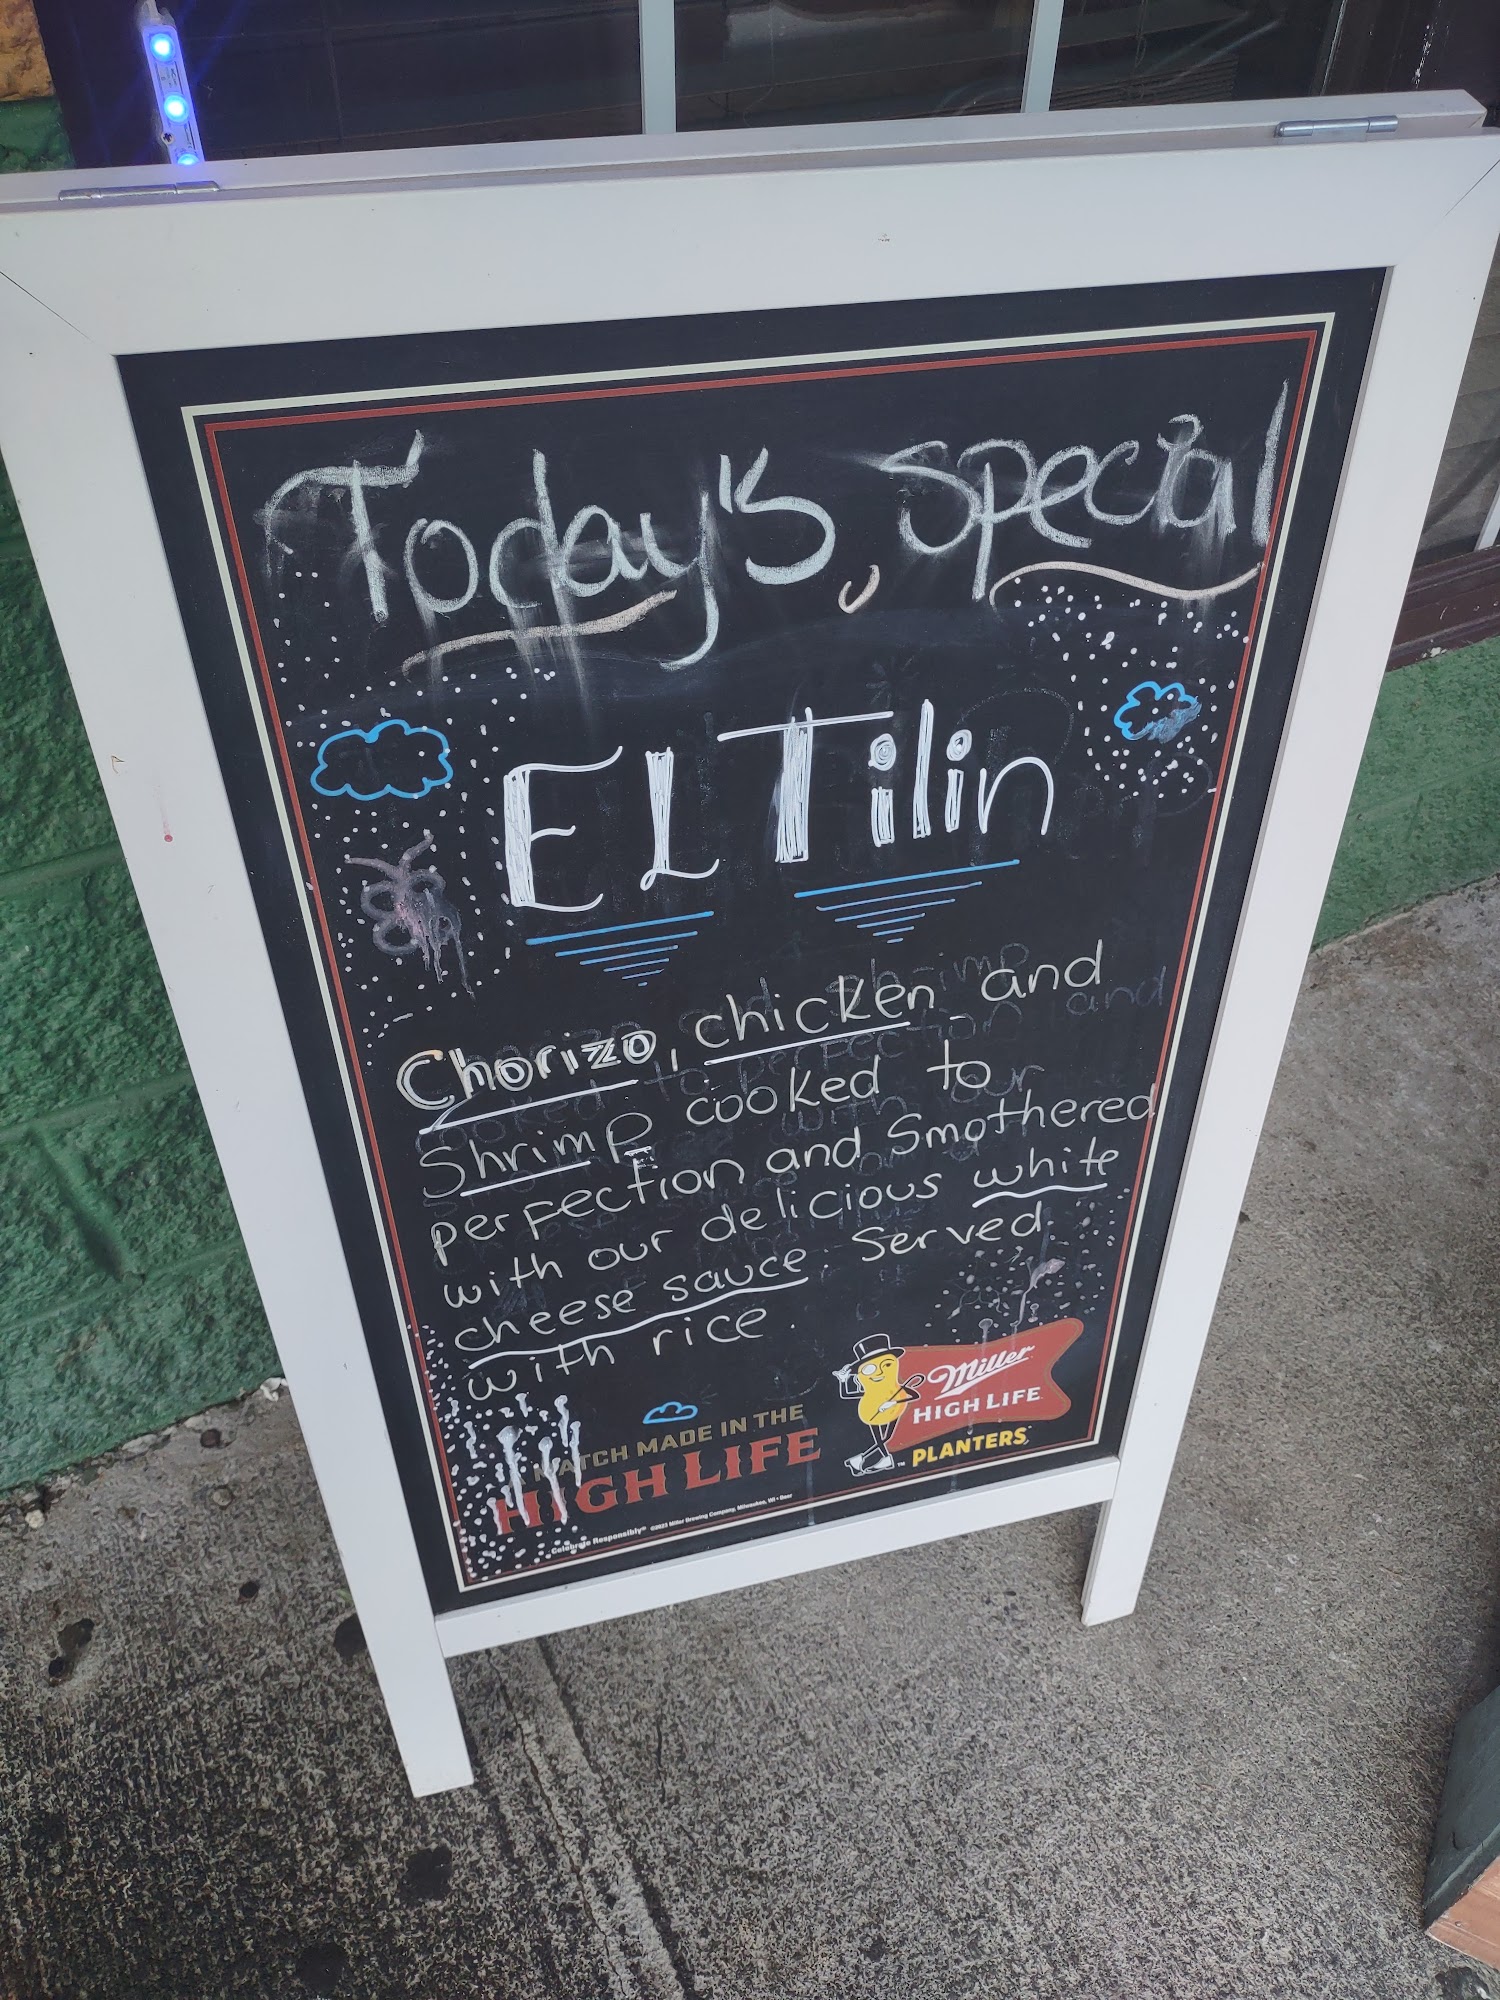 Today's special
EL Tilin
Chorizo, chicken and
Shrimp cooked to
perfection and Smothered
with our delicious white
cheese sauce. Served
with rice.
MATCH MADE IN THE
HIGH LIFE
Miller
HIGH LIFE
PLANTERS
Celebrate Responsibly® ©2023 Miller Brewing Company, Milwaukee, WI • Beer